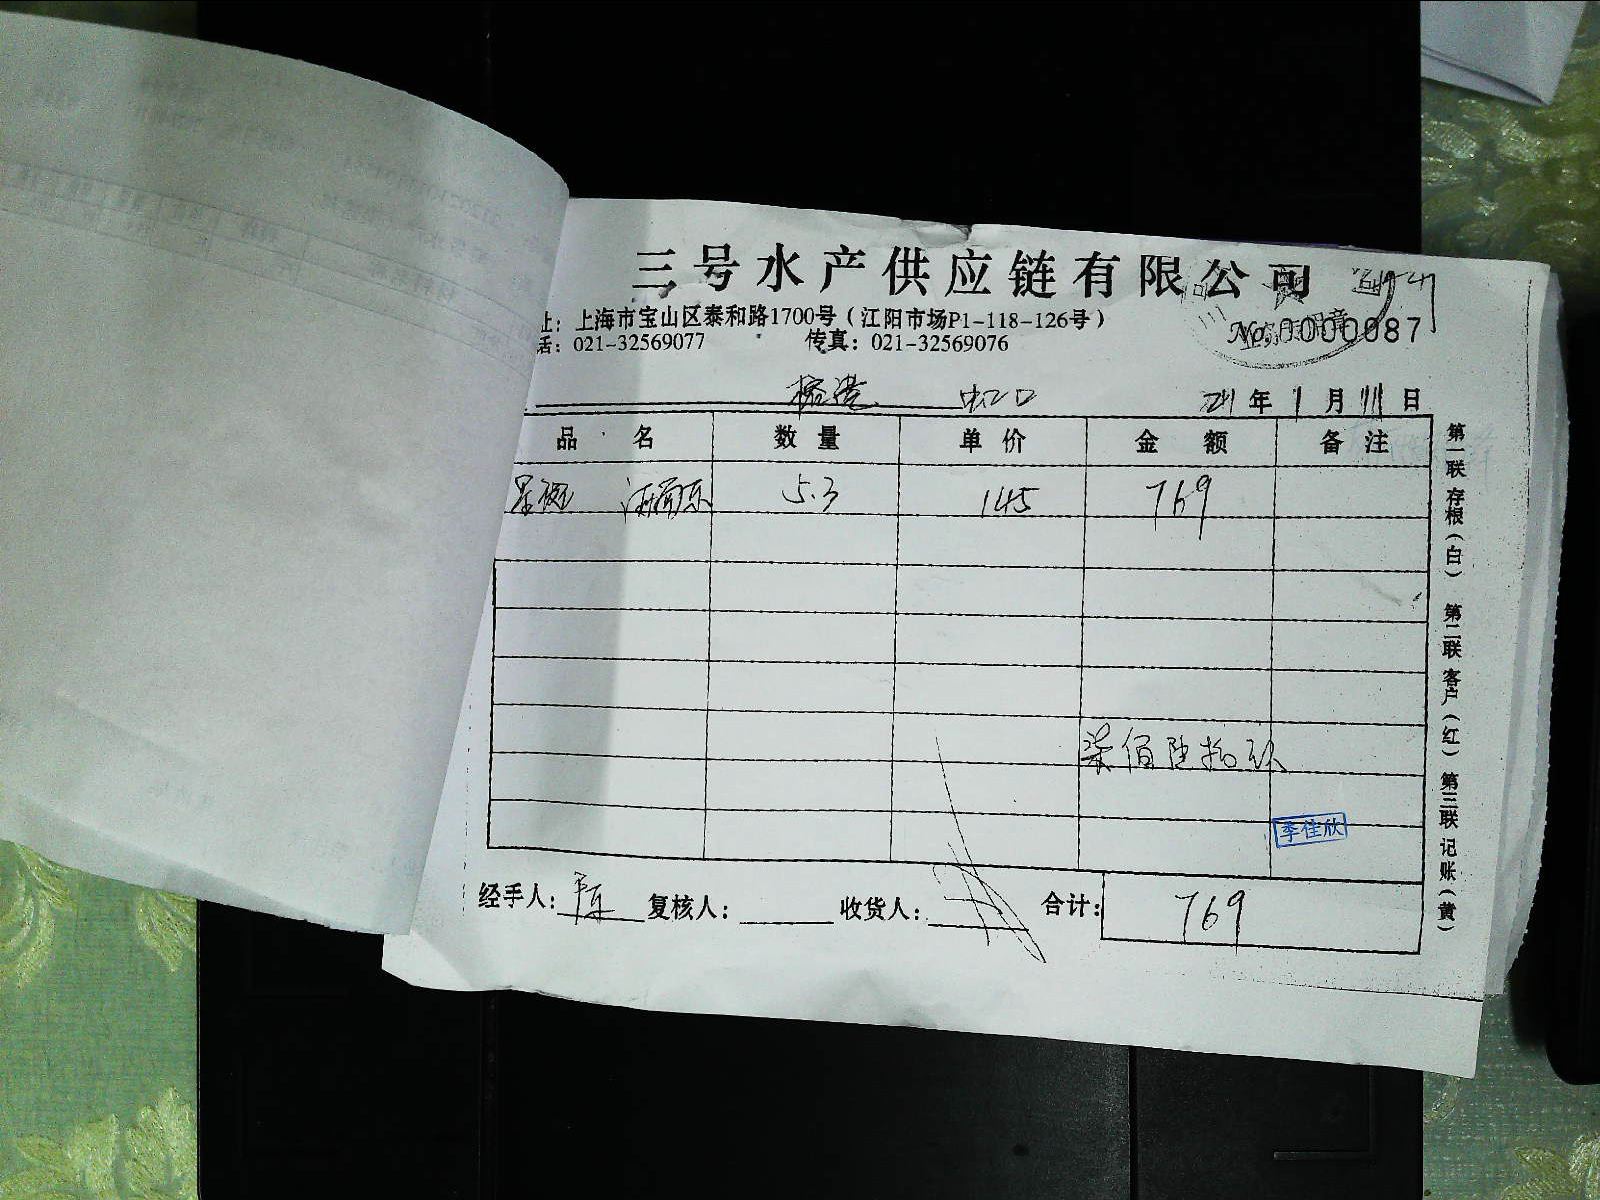 三号水产供应链有限公司
址：上海市宝山区泰和路1700号（江阳市场P1-118-126号）
话：021-32569077 传真：021-32569076
No.0000087
榕港 虹口 年 1 月 日
品 名 数 量 单 价 金 额 备 注
星斑 海南东 5.3 145 769
柒佰陆拾玖
季佳欣
经手人：陈 复核人： 收货人： 合计：769
第一联 存根（白） 第二联 客户（红） 第三联 记账（黄）